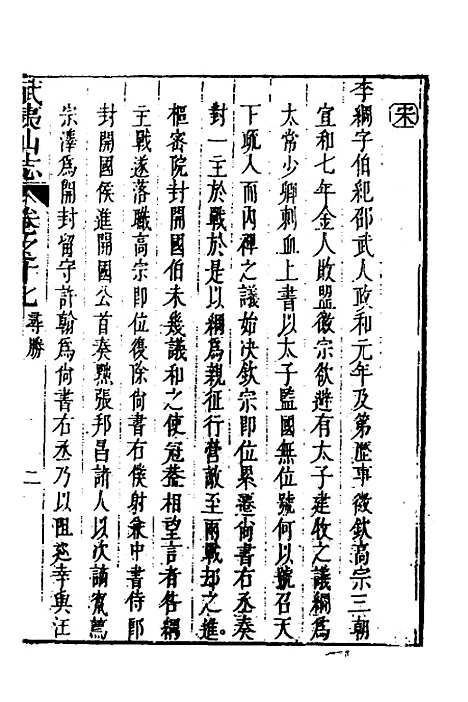 宋
李綱字伯紀邵武人政和元年及第歷事徽欽高宗三朝
宣和七年金人敗盟徽宗欲避有太子建牧之議綱為
太常少卿刺血上書以太子監國無位號何以號召天
下疏入而內禪之議始决欽宗即位累遷尚書右丞奏
對一主於戰於是以綱為親征行營敵至兩戰却之進
樞密院封開國伯未幾議和之使冠蓋相望言者咎綱
主戰遂落職高宗即位復除尚書右僕射兼中書侍郎
封開國侯進開國公首奏黜張邦昌諸人以次謫竄薦
宗澤為開封留守許翰為尚書右丞乃以阻巡幸與汪
武夷山志 卷之十七 尋勝 二